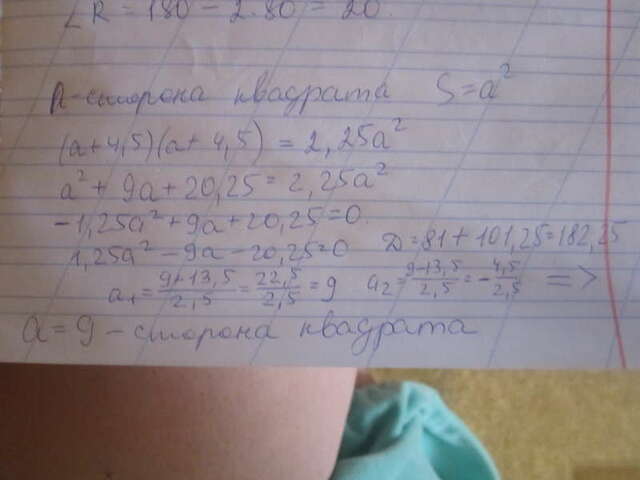 ∠R = 180 - 2·80 = 20.
А-сторона квадрата S=a²
(a+4,5)(a+4,5) = 2,25a²
a² + 9a + 20,25 = 2,25a²
-1,25a² + 9a + 20,25 = 0.
1,25a² - 9a - 20,25 = 0 D = 81 + 101,25 = 182,25
a₁ = 9+13,5/2,5 = 22,5/2,5 = 9 a₂ = 9-13,5/2,5 = -4,5/2,5 =>
a = 9 - сторона квадрата